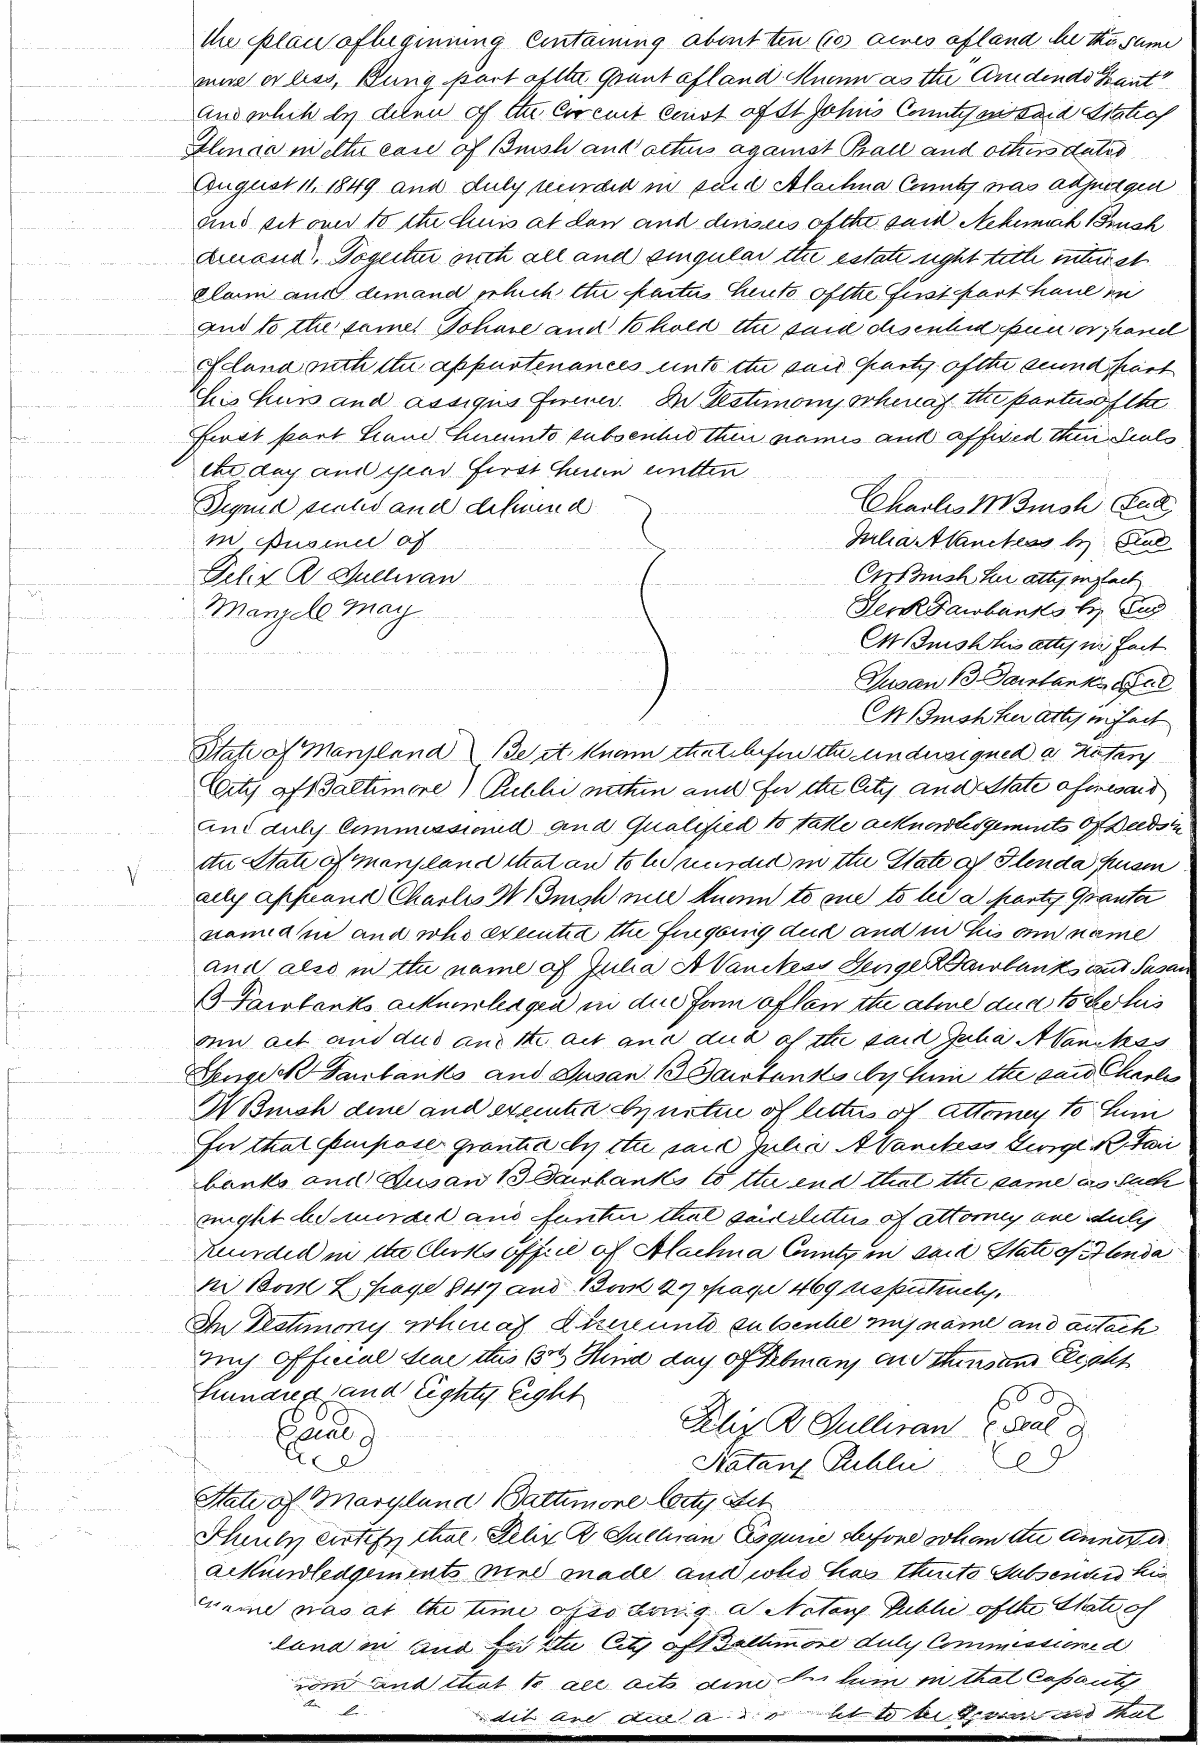 the place of beginning Containing about ten (10) acres of land be the same
more or less, Being part of the Grant of land Known as the "Arredondo Grant"
and which by decree of the Circuit Court of St Johns County in said State of
Florida in the case of Brush and others against Ball and others dated
August 11, 1849 and duly recorded in said Alachua County was adjudged
and set over to the heirs at law and devisees of the said Nehemiah Brush
deceased. Together with all and singular the estate right title interest
Claim and demand which the parties hereto of the first part have in
and to the same. To have and to hold the said described piece or parcel
of land with the appurtenances unto the said party of the second part
his heirs and assigns forever. In Testimony whereof the parties of the
first part have hereunto subscribed their names and affixed their Seals
the day and year first herein written
Signed sealed and delivered
in presence of
Felix R Sullivan
Mary M May
Charles W Brush Seal
Julia A VanNess by Seal
CW Brush her atty in fact
Geo R Fairbanks by Seal
CW Brush his atty in fact
Susan B Fairbanks Seal
CW Brush her atty in fact
State of Maryland ) Be it Known that before the undersigned a Notary
City of Baltimore ) Public within and for the City and State aforesaid
and duly Commissioned and Qualified to take acknowledgements of Deeds in
the State of Maryland that are to be recorded in the State of Florida person
ally appeared Charles W Brush well Known to me to be a party Grantor
named in and who executed the foregoing deed and in his own name
and also in the name of Julia A VanNess George R Fairbanks and Susan
B Fairbanks acknowledged in due form of law the above deed to be his
own act and deed and the act and deed of the said Julia A VanNess
George R Fairbanks and Susan B Fairbanks by him the said Charles
W Brush done and executed by virtue of letters of Attorney to him
for that purpose granted by the said Julia A VanNess George R Fair
banks and Susan B Fairbanks to the end that the same as such
might be recorded and further that said letters of attorney are duly
recorded in the Clerks office of Alachua County in said State of Florida
in Book L page 847 and Book 27 page 469 respectively.
In Testimony whereof I hereunto subscribe my name and attach
my official Seal this (3rd) Third day of February one thousand Eight
hundred and Eighty Eight
Seal
Felix R Sullivan Seal
Notary Public
State of Maryland Baltimore City Sct
I hereby certify that, Felix R Sullivan Esquire before whom the annexed
acknowledgements were made and who has thereto Subscribed his
name was at the time of so doing a Notary Public of the State of
land in and for the City of Baltimore duly Commissioned
and that to all acts done by him in that Capacity
dit are due a to be given and that